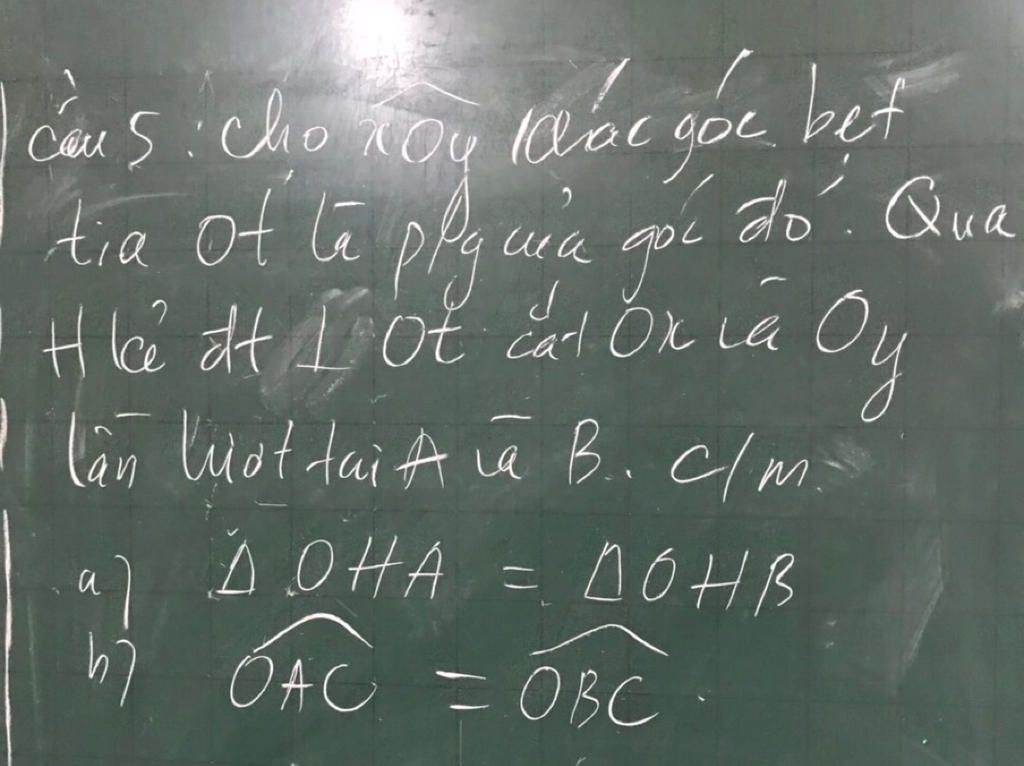 câu 5: Cho xOy khác góc bẹt
tia Ot là p/g của góc đó. Qua
H kẻ đt ⊥ Ot cắt Ox và Oy
lần lượt tại A và B. C/m
a) Δ OHA = Δ OHB
b) OAC = OBC.